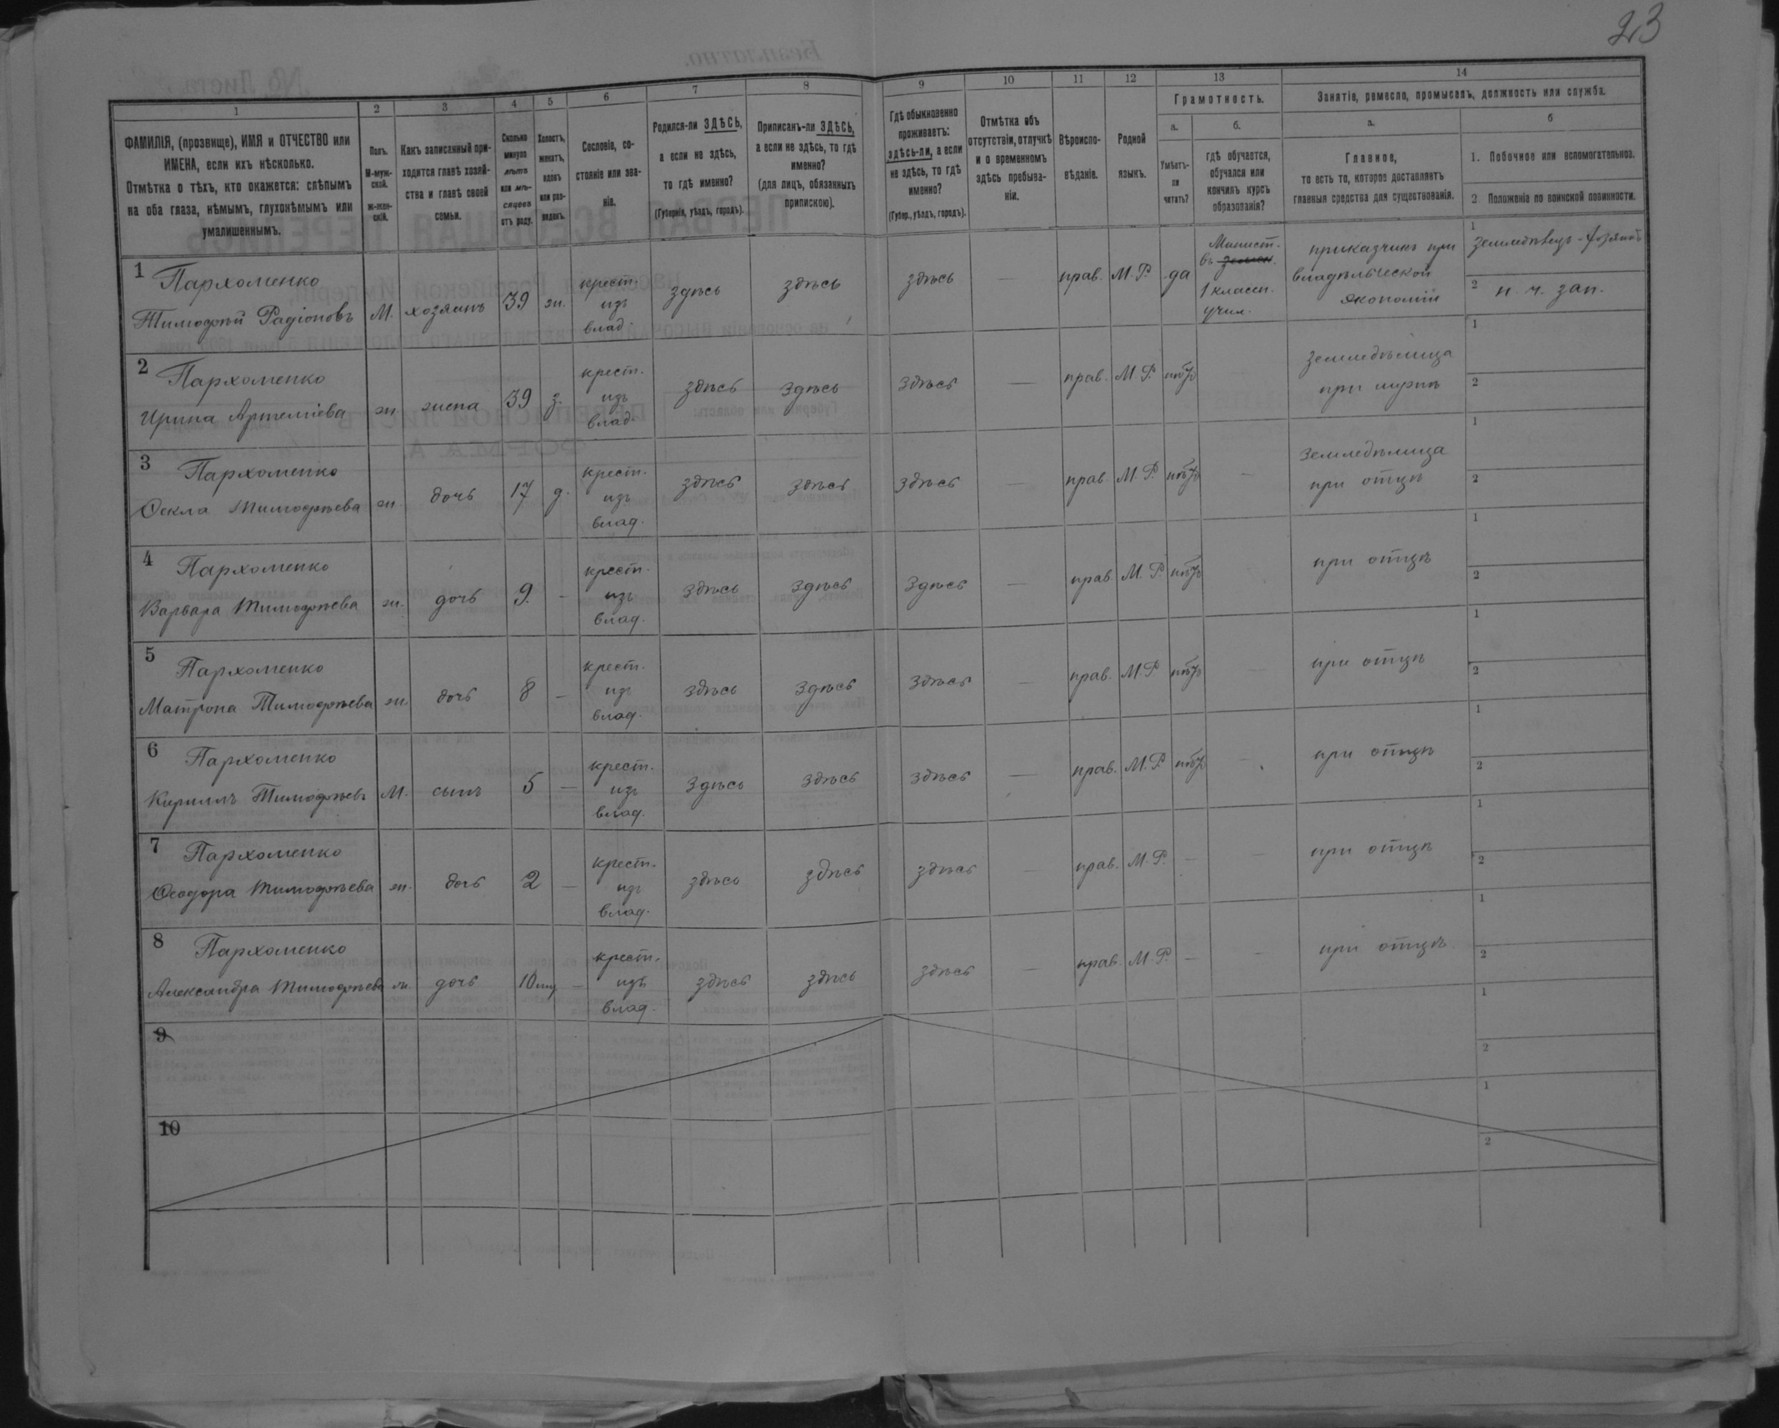 23
1 2 3 4 5 6 7 8 9 10 11 12 13 14
ФАМИЛІЯ, (прозвище), ИМЯ и ОТЧЕСТВО или
ИМЕНА, если ихъ нѣсколько.
Отмѣтка о тѣхъ, кто окажется: слѣпымъ
на оба глаза, нѣмымъ, глухонѣмымъ или
умалишеннымъ.
Полъ.
М-муж-
ской.
ж-жен-
скій.
Какъ записанный при-
ходится главѣ хозяй-
ства и главѣ своей
семьи.
Сколько
минуло
лѣтъ
или мѣ-
сяцевъ
отъ роду.
Холостъ,
женатъ,
вдовъ
или раз-
веденъ.
Сословіе, со-
стояніе или зва-
ніе.
Родился-ли ЗДѢСЬ,
а если не здѣсь,
то гдѣ именно?
(Губернія, уѣздъ, городъ).
Приписанъ-ли ЗДѢСЬ,
а если не здѣсь, то гдѣ
именно?
(для лицъ, обязанныхъ
припискою).
Гдѣ обыкновенно
проживаетъ:
здѣсь-ли, а если
не здѣсь, то гдѣ
именно?
(Губер., уѣздъ, городъ).
Отмѣтка объ
отсутствіи, отлучкѣ
и о временномъ
здѣсь пребыва-
ніи.
Вѣроиспо-
вѣданіе.
Родной
языкъ.
Грамотность.
а.
Умѣетъ-
ли
читать?
б.
гдѣ обучается,
обучался или
кончилъ курсъ
образованія?
Занятіе, ремесло, промыселъ, должность или служба.
а.
Главное,
то есть то, которое доставляетъ
главныя средства для существованія.
б
1. Побочное или вспомогательное.
2. Положеніе по воинской повинности.
1 Пархоменко
Тимофѣй Радіоновъ М. хозяинъ 39 ж.
крест.
изъ
влад.
здѣсь здѣсь здѣсь — прав. М. Р. да
Минист.
въ
1 классн.
учил.
приказчикъ при
владѣльческой
экономіи
1 земледѣлецъ
2 н. ч. зап.
2 Пархоменко
Ирина Артеміева ж жена 39 з.
крест.
изъ
влад.
здѣсь здѣсь здѣсь — прав. М. Р. нѣтъ
земледѣлица
при мужѣ
1
2
3 Пархоменко
Ѳекла Тимофѣева ж дочь 17 д.
крест.
изъ
влад.
здѣсь здѣсь здѣсь — прав. М. Р. нѣтъ —
земледѣлица
при отцѣ
1
2
4 Пархоменко
Варвара Тимофѣева ж. дочь 9. —
крест.
изъ
влад.
здѣсь здѣсь здѣсь — прав. М. Р. нѣтъ
при отцѣ
1
2
5 Пархоменко
Матрона Тимофѣева ж. дочь 8 —
крест.
изъ
влад.
здѣсь здѣсь здѣсь — прав. М. Р. нѣтъ —
при отцѣ
1
2
6 Пархоменко
Кириллъ Тимофѣевъ М. сынъ 5 —
крест.
изъ
влад.
здѣсь здѣсь здѣсь — прав. М. Р. нѣтъ —
при отцѣ
1
2
7 Пархоменко
Ѳеодора Тимофѣева ж. дочь 2 —
крест.
изъ
влад.
здѣсь здѣсь здѣсь — прав. М. Р. — —
при отцѣ
1
2
8 Пархоменко
Александра Тимофѣева ж. дочь 10 —
крест.
изъ
влад.
здѣсь здѣсь здѣсь — прав. М. Р. — —
при отцѣ
1
2
9
1
2
10
1
2